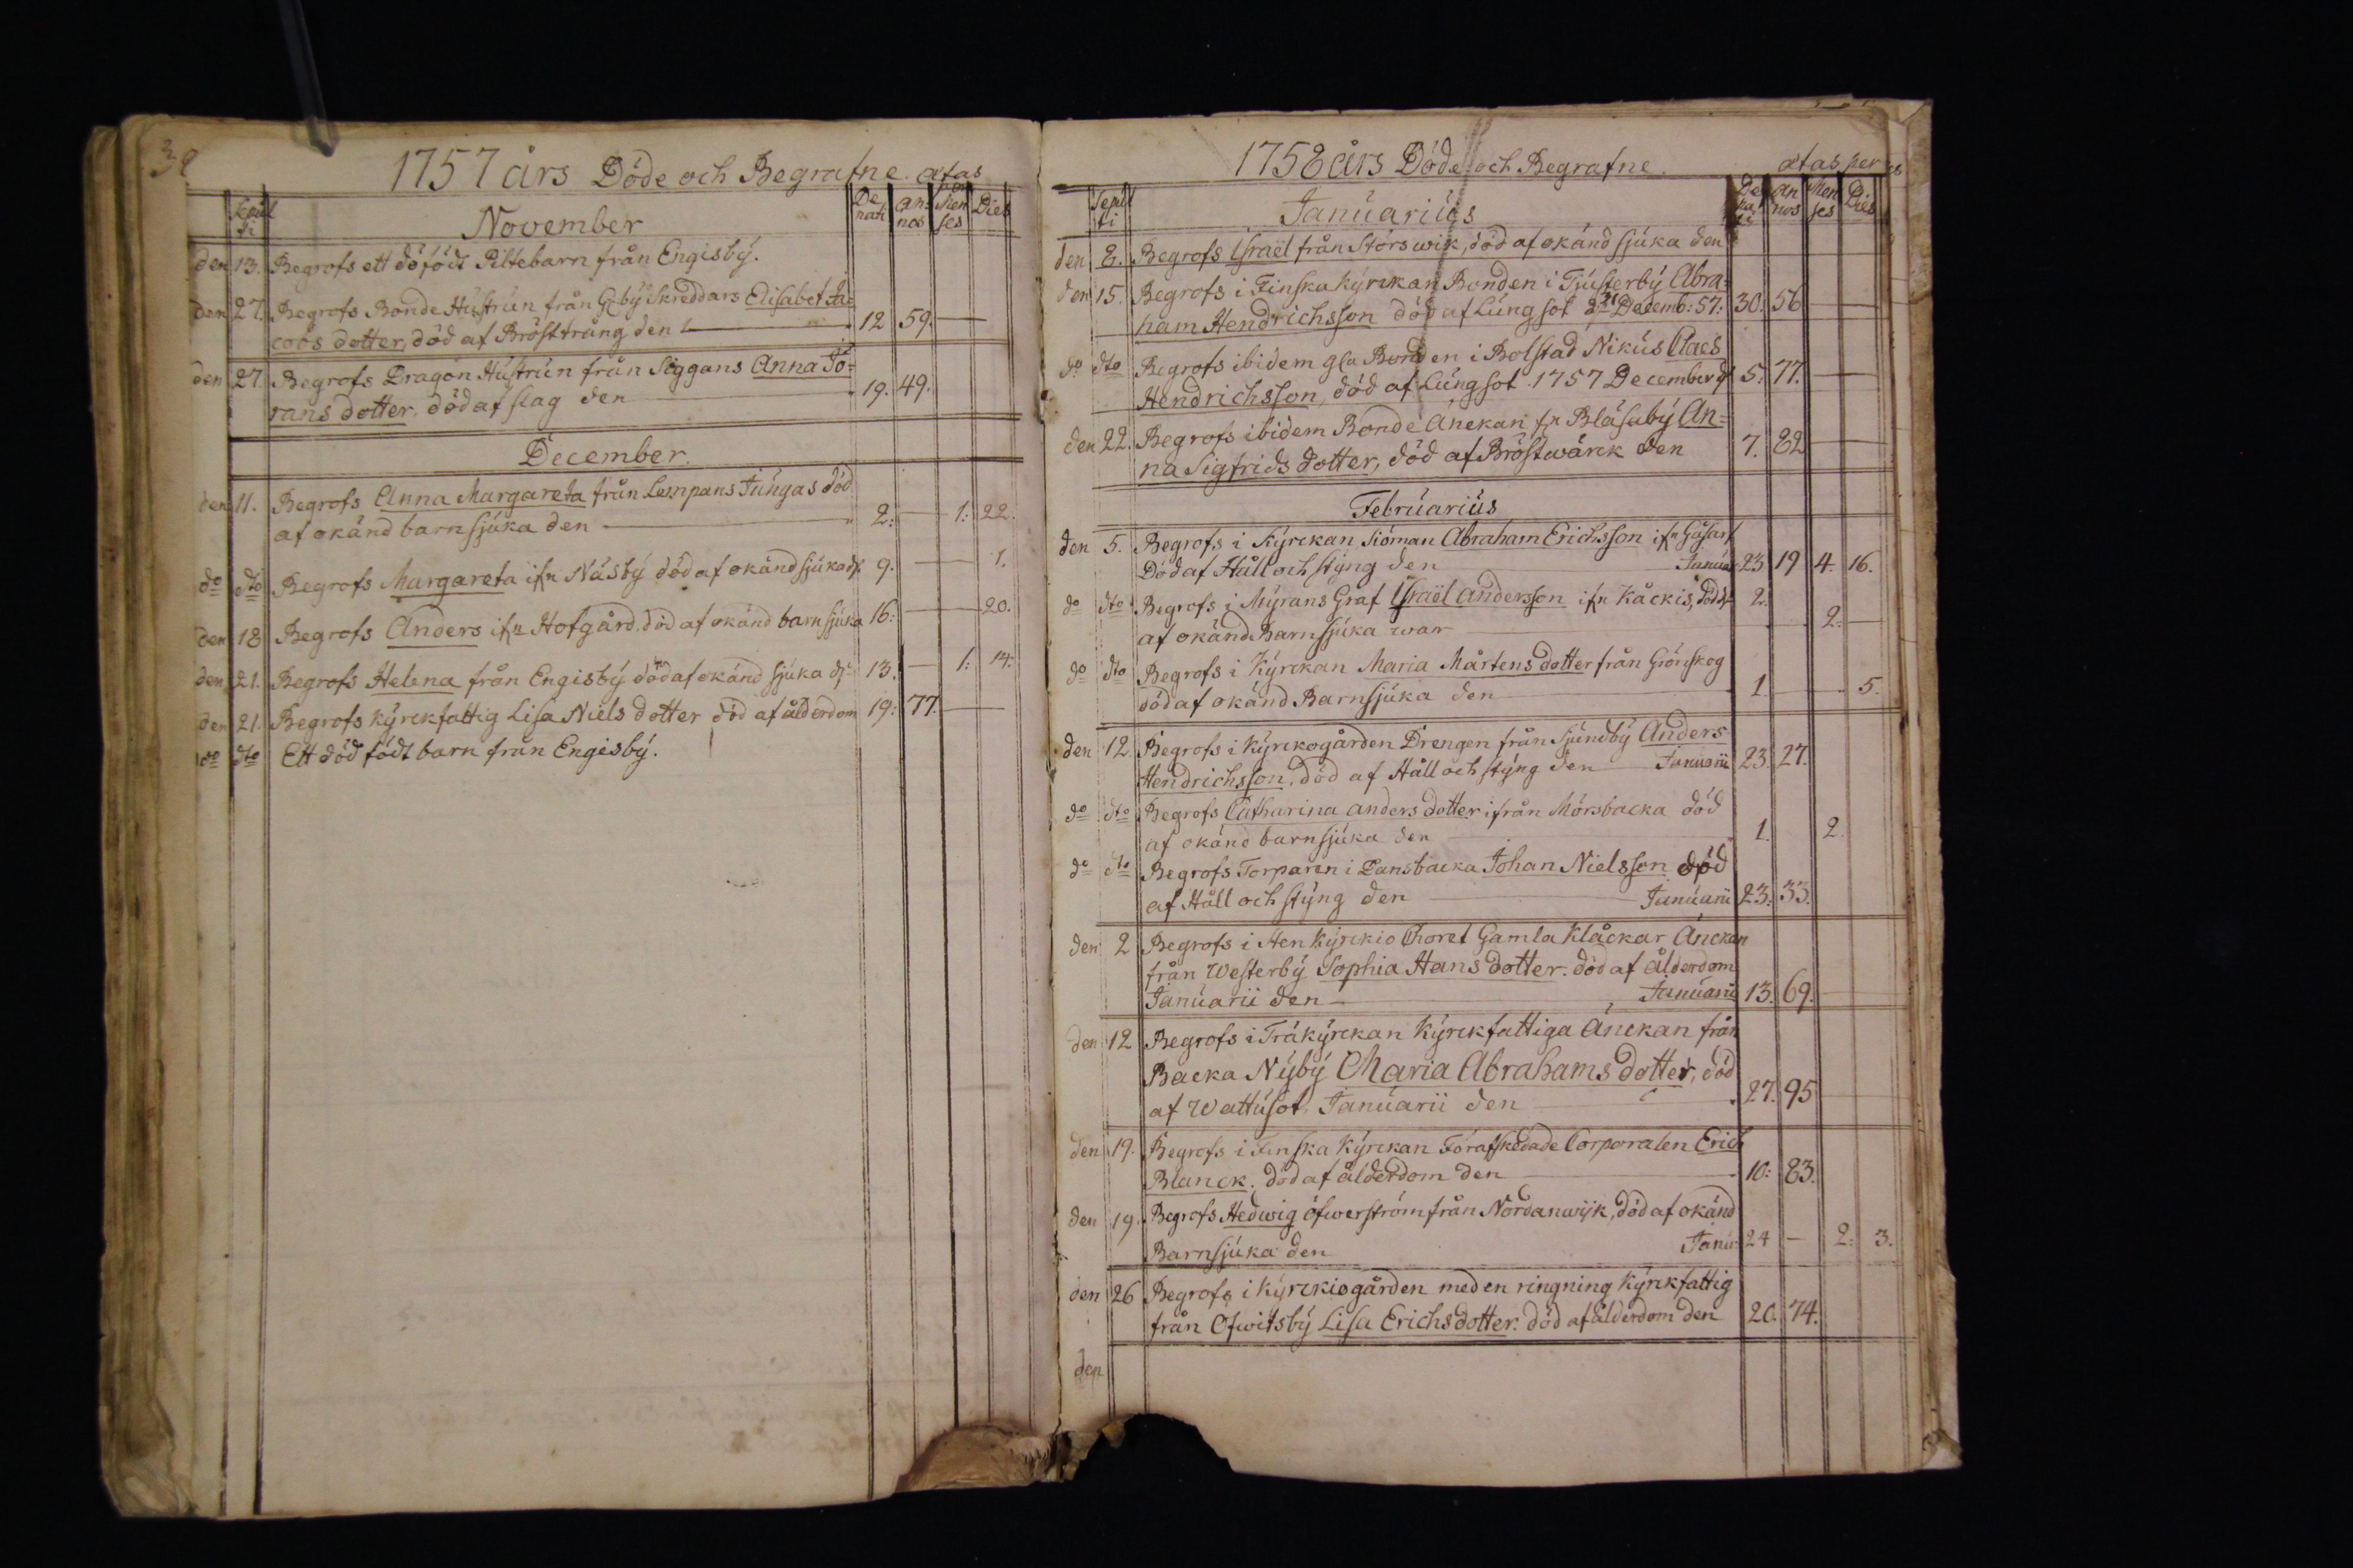 38
1757 års Döde och Begrafne. ætas per
Sepulti November Denati Annos Menses Dies
den 13. Begrofs ett döfödt Piltebarn från Engisbÿ.
den 27. Begrofs Bonde Hustrun från Gebÿ Skreddars Elisabet Ja=
cobs dotter, död af Brösttrång den 12 59.
den 27. Begrofs Dragon Hustrun från Siggans Anna Jö=
rans dotter. död af slag den 19. 49.
December.
den 11. Begrofs Anna Margareta från Lempans Jungas död
af okänd barnsjúka den 2: 1: 22.
do dto Begrofs Margareta ifrn Näsbÿ död af okänd sjúka d. 9. 1.
den 18 Begrofs Anders ifrn Hofgård. död af okänd barnsjúka 16: 20.
den 21. Begrofs Helena från Engisbÿ död af okänd sjúka d. 13. 1: 14.
den 21. Begrofs kÿrckfattig Lisa Niels dotter död af ålderdom 19: 77.
do dto Ett död födt barn från Engisbÿ.
1758 års Döde och Begrafne. ætas per
Sepulti Januarius Denati Annos Menses Dies
den 8. Begrofs Israël från Störswik, död af okänd sjúka den
den 15. Begrofs i Finska Kÿrckan Bonden i Tjústerbÿ Abra=
ham Hendrichsson död af Lúngsot Decemb: 57: 30. 56
do dto Begrofs ibidem gla Bonden i Bolstad Nikus Claes
Hendrichsson, död af Lúngsot 1757 December d. 5. 77.
den 22. Begrofs ibidem Bonde Änckan fr Bläsabÿ An=
na Sigfrids dotter, död af Bröstwärck den 7. 82
Februarius
den 5. Begrofs i Kÿrckan Siöman Abraham Erichsson ifrn Gåsarf
Död af Håll och stÿng den Januar 23 19 4. 16.
do dto Begrofs i Mÿrans Graf Israël Andersson ifrn Kåckis, död 2.
af okänd Barnsjúka war 2.
do dto Begrofs i Kÿrckan Maria Mårtens dotter från Grönskog
död af okänd Barnsjúka den 1 5.
den 12. Begrofs i Kÿrckogården Drengen från Sjúndbÿ Anders
Hendrichsson, död af Håll och stÿng den Januarii 23. 27.
do dto Begrofs Catharina Anders dotter ifrån Mörsbacka död
af okänd barnsjúka den 1. 2.
do dto Begrofs Torparen i Dansbacka Johan Nielsson död
af Håll och stÿng den Januarii 23. 33.
den 2 Begrofs i Sten Kÿrckio Choret Gamla Klåckar Änckan
från Westerbÿ Sophia Hans dotter. död af ålderdom
Januarii den Januarii 13. 69.
den 12 Begrofs i Träkÿrckan Kÿrckfattiga Änckan från
Backa Nÿbÿ Maria Abrahams dotter, död
af Wattúsot, Januarii den 27. 95
den 19. Begrofs i Finska Kÿrckan Förafskedade Corporalen Erich
Blanck. död af ålderdom den 10: 83.
den 19. Begrofs Hedwig öfwerström från Nordanwijk, död af okänd
Barnsjúka den Janu: 24 – 2: 3.
den 26 Begrofs i Kÿrckiogården med en ringning kÿrckfattig
från Ofwitsbÿ Lisa Erichsdotter. död af ålderdom den 20. 74.
den